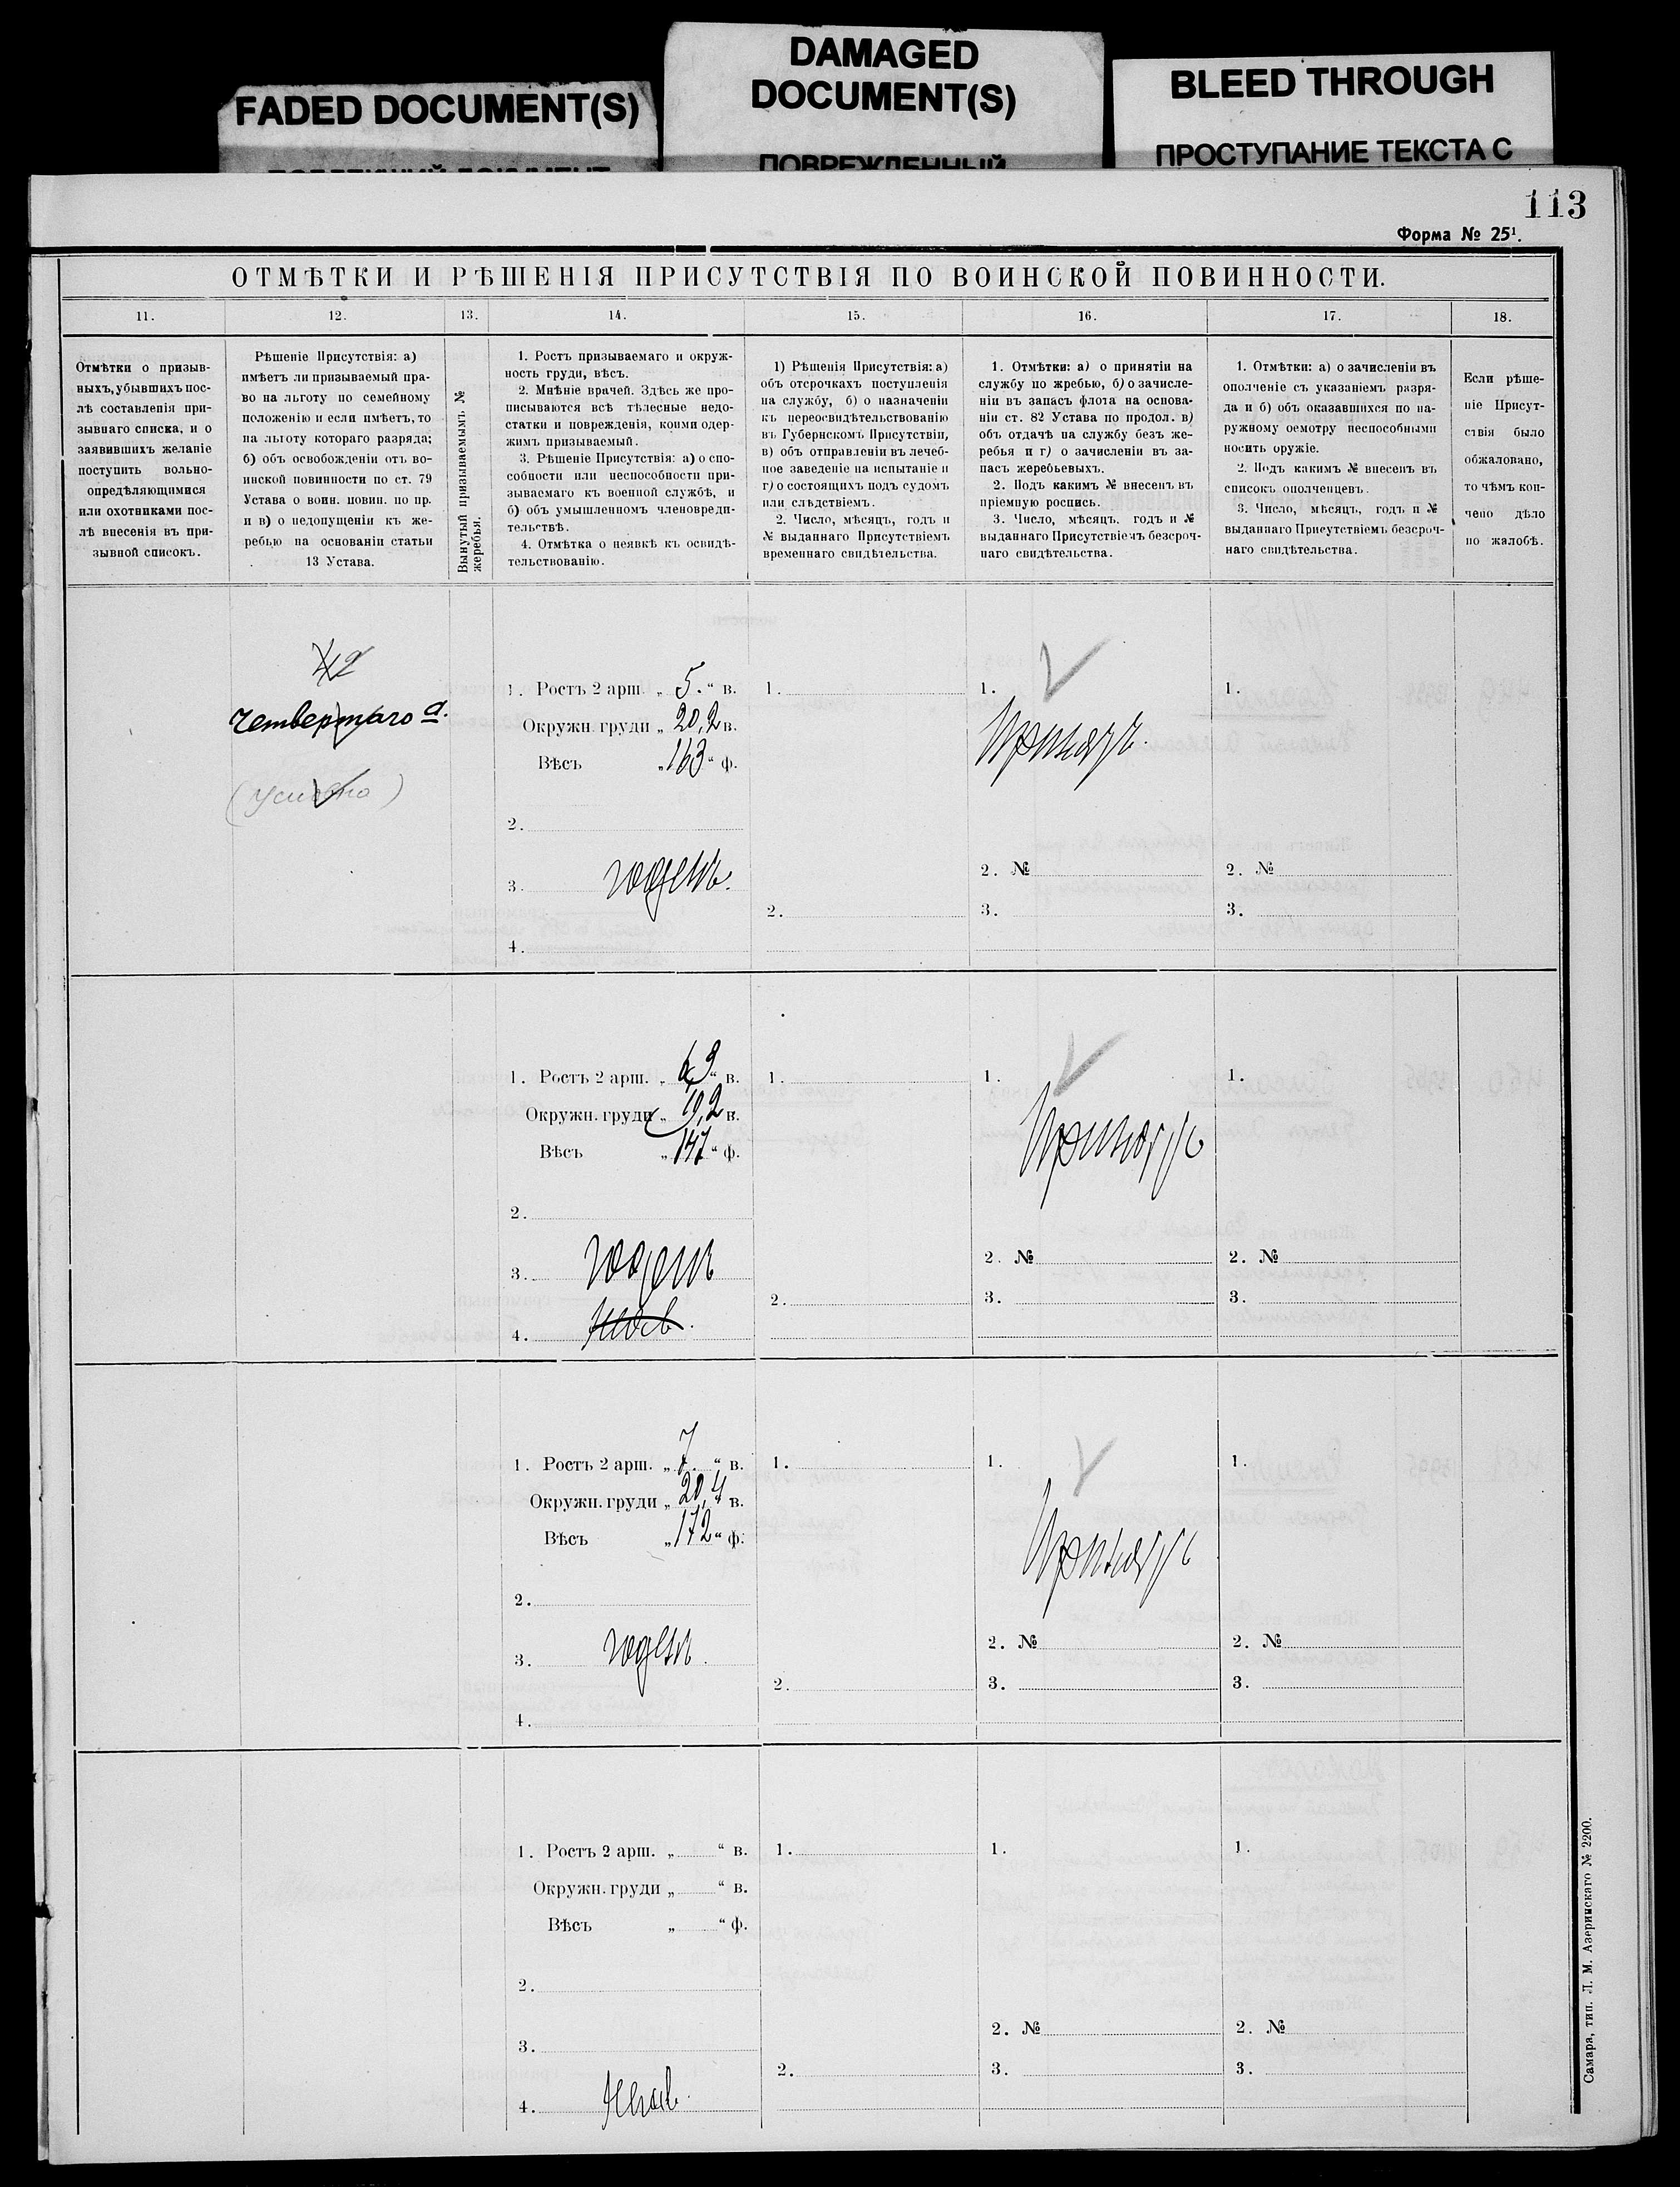 FADED DOCUMENT(S)
DAMAGED
DOCUMENT(S)
ПОВРЕЖДЕННЫЙ
BLEED THROUGH
ПРОСТУПАНИЕ ТЕКСТА С
113
Форма № 25¹.
ОТМѢТКИ И РѢШЕНІЯ ПРИСУТСТВІЯ ПО ВОИНСКОЙ ПОВИННОСТИ.
11.
12.
13.
14.
15.
16.
17.
18.
Отмѣтки о призыв-
ныхъ, убывшихъ пос-
лѣ составленія при-
зывнаго списка, и о
заявившихъ желаніе
поступить вольно-
опредѣляющимися
или охотниками пос-
лѣ внесенія въ при-
зывной списокъ.
Рѣшеніе Присутствія: а)
имѣетъ ли призываемый пра-
во на льготу по семейному
положенію и если имѣетъ, то
на льготу котораго разряда;
б) объ освобожденіи отъ во-
инской повинности по ст. 79
Устава о воин. повин. по пр.
и в) о недопущеніи къ же-
ребью на основаніи статьи
13 Устава.
Вынутый призываемымъ №
жеребья.
1. Ростъ призываемаго и окруж-
ность груди, вѣсъ.
2. Мнѣніе врачей. Здѣсь же про-
писываются всѣ тѣлесные недо-
статки и поврежденія, коими одер-
жимъ призываемый.
3. Рѣшеніе Присутствія: а) о спо-
собности или неспособности при-
зываемаго къ военной службѣ, и
б) объ умышленномъ членовреди-
тельствѣ.
4. Отмѣтка о неявкѣ къ освидѣ-
тельствованію.
1) Рѣшенія Присутствія: а)
объ отсрочкахъ поступленія
на службу, б) о назначеніи
къ переосвидѣтельствованію
въ Губернскомъ Присутствіи,
в) объ отправленіи въ лечеб-
ное заведеніе на испытаніе и
г) о состоящихъ подъ судомъ
или слѣдствіемъ.
2. Число, мѣсяцъ, годъ и
№ выданнаго Присутствіемъ
временнаго свидѣтельства.
1. Отмѣтки: а) о принятіи на
службу по жребью, б) о зачисле-
ніи въ запасъ флота на основа-
ніи ст. 82 Устава по продол. в)
объ отдачѣ на службу безъ же-
ребья и г) о зачисленіи въ за-
пасъ жеребьевыхъ.
2. Подъ какимъ № внесенъ въ
пріемную роспись.
3. Число, мѣсяцъ, годъ и №
выданнаго Присутствіемъ безсроч-
наго свидѣтельства.
1. Отмѣтки: а) о зачисленіи въ
ополченіе съ указаніемъ разря-
да и б) объ оказавшихся по на-
ружному осмотру неспособными
носить оружіе.
2. Подъ какимъ № внесенъ въ
списокъ ополченцевъ.
3. Число, мѣсяцъ, годъ и №
выданнаго Присутствіемъ безсроч-
наго свидѣтельства.
Если рѣше-
ніе Присут-
ствія было
обжаловано,
то чѣмъ кон-
чено дѣло
по жалобѣ.
четвертаго
(условно)
1. Ростъ 2 арш. „ 5. “ в.
Окружн. груди „ 20,2 в.
Вѣсъ „ 163 “ ф.
2.
3. годенъ.
4.
1.
2.
1.
Принятъ.
2. №
3.
1.
2. №
3.
1. Ростъ 2 арш. „ “ в.
Окружн. груди „ 19,2 в.
Вѣсъ „ 147 “ ф.
2.
3. годенъ
4. неяв.
1.
2.
1.
Принятъ
2. №
3.
1.
2. №
3.
1. Ростъ 2 арш. „ 7. “ в.
Окружн. груди „ 20,4 в.
Вѣсъ „ 172 “ ф.
2.
3. годенъ.
4.
1.
2.
1.
Принятъ
2. №
3.
1.
2. №
3.
1. Ростъ 2 арш. „ “ в.
Окружн. груди „ “ в.
Вѣсъ „ “ ф.
2.
3.
4. Неяв.
1.
2.
1.
2. №
3.
1.
2. №
3.
Самара, тип. Л. М. Азеринскаго № 2200.